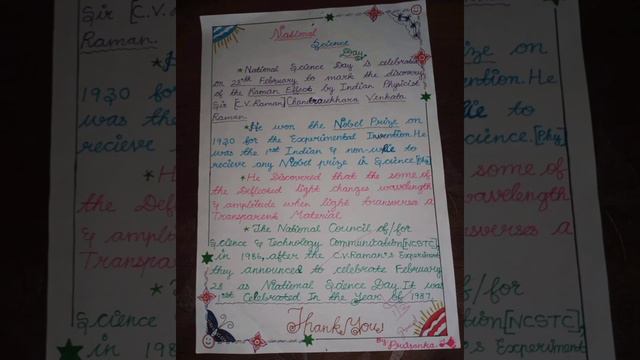 National
Science
Day
* National Science Day is celebrated
on 28th February to mark the discovery
of the Raman Effect by Indian Physicist
Sir [C.V.Raman] Chandrawkhara Venkata
Raman.
* He won the Nobel Prize on
1930 for the Experimental Invention. He
was the 1st Indian & non-
to
recieve any Nobel prize in Science.[Phy]
* He Discovered that the some of
the Deflected light changes wavelength
& amplitude when light transverses a
Transparent Material
* The National Council of/for
Science & Technology Communication[NCSTC]
in 1986, after the C.V.Raman's Experiment
they announced to celebrate February
28 as National Science Day. It was
1st Celebrated In the Year Of 1987.
Thank You
By Priyanka